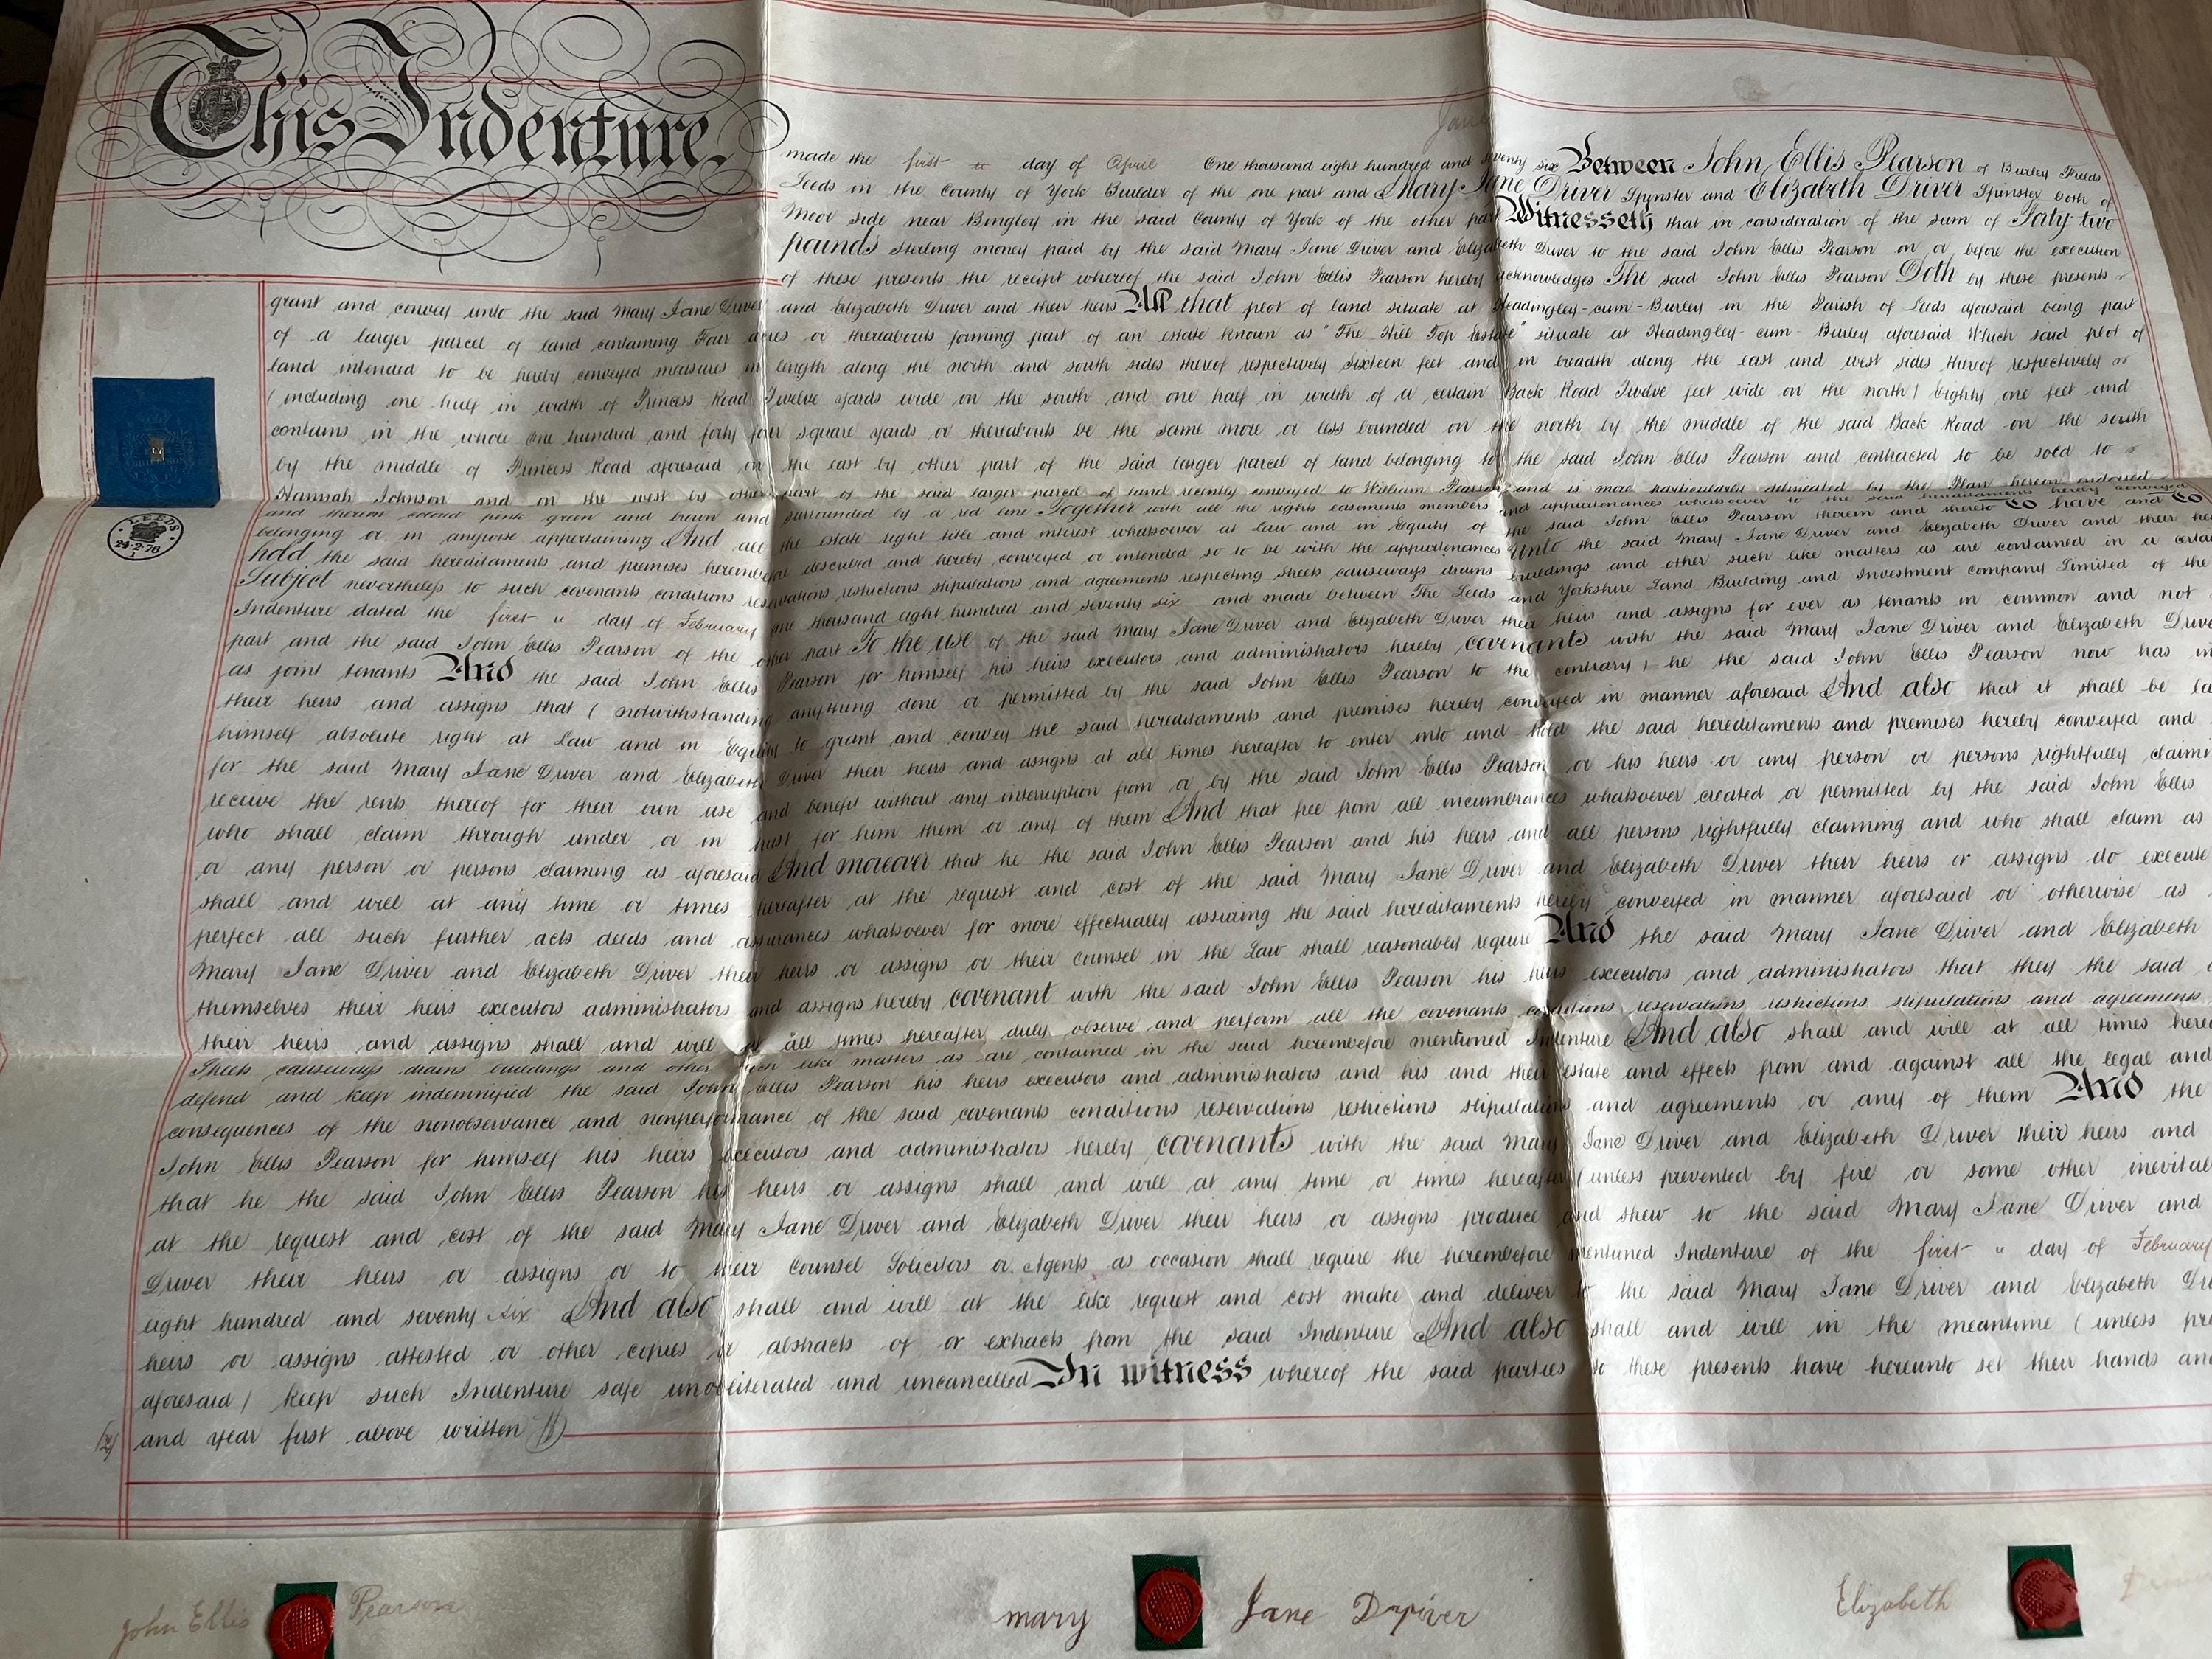 This Indenture.
made the first day of April One thousand eight hundred and seventy six Between John Ellis Pearson of Burley Fields
Leeds in the County of York Builder of the one part and Mary Jane Driver Spinster and Elizabeth Driver Spinster both of
Moor side near Bingley in the said County of York of the other part Witnesseth that in consideration of the sum of two
pounds sterling money paid by the said Mary Jane Driver and Elizabeth Driver to the said John Ellis Pearson on or before the execution
of these presents the receipt whereof the said John Ellis Pearson hereby acknowledges The said John Ellis Pearson Doth by these presents
grant and convey unto the said Mary Jane Driver and Elizabeth Driver and their heirs All that plot of land situate at Headingley-cum-Burley in the Parish of Leeds aforesaid being part
of a larger parcel of land containing Four acres or thereabouts forming part of an estate known as "The Hill Top Estate" situate at Headingley-cum-Burley aforesaid Which said plot of
land intended to be hereby conveyed measures in length along the north and south sides thereof respectively sixteen feet and in breadth along the east and west sides thereof respectively
(including one half in width of Princess Road Twelve yards wide on the south and one half in width of a certain Back Road Twelve feet wide on the north) Eighty one feet and
contains in the whole One hundred and forty four square yards or thereabouts be the same more or less bounded on the north by the middle of the said Back Road on the south
by the middle of Princess Road aforesaid on the east by other part of the said larger parcel of land belonging to the said John Ellis Pearson and contracted to be sold to
Hannah Johnson and on the west by other part of the said larger parcel of land recently conveyed to William Pearson and is more particularly delineated by the Plan hereon endorsed
and thereon colored pink green and brown and surrounded by a red line Together with all the rights easements members and appurtenances whatsoever to the said hereditaments hereby conveyed
belonging or in anywise appertaining And all the estate right title and interest whatsoever at Law and in Equity of the said John Ellis Pearson therein and thereto To have and To
hold the said hereditaments and premises hereinbefore described and hereby conveyed or intended so to be with the appurtenances Unto the said Mary Jane Driver and Elizabeth Driver and their
Subject nevertheless to such covenants conditions reservations restrictions stipulations and agreements respecting Streets causeways drains buildings and other such like matters as are contained in a
Indenture dated the first day of February one thousand eight hundred and seventy six and made between The Leeds and Yorkshire Land Building and Investment Company Limited of the
part and the said John Ellis Pearson of the other part To the use of the said Mary Jane Driver and Elizabeth Driver their heirs and assigns for ever as tenants in common and not
as joint tenants And the said John Ellis Pearson for himself his heirs executors and administrators hereby covenants with the said Mary Jane Driver and Elizabeth
their heirs and assigns that (notwithstanding anything done or permitted by the said John Ellis Pearson to the contrary) he the said John Ellis Pearson now has in
himself absolute right at Law and in Equity to grant and convey the said hereditaments and premises hereby conveyed in manner aforesaid And also that it shall be
for the said Mary Jane Driver and Elizabeth Driver their heirs and assigns at all times hereafter to enter into and hold the said hereditaments and premises hereby conveyed and
receive the rents thereof for their own use and benefit without any interruption from or by the said John Ellis Pearson or his heirs or any person or persons rightfully
who shall claim through under or in trust for him them or any of them And that free from all incumbrances whatsoever created or permitted by the said John Ellis
or any person or persons claiming as aforesaid And moreover that he the said John Ellis Pearson and his heirs and all persons rightfully claiming and who shall claim as
shall and will at any time or times hereafter at the request and cost of the said Mary Jane Driver and Elizabeth Driver their heirs or assigns do execute
perfect all such further acts deeds and assurances whatsoever for more effectually assuring the said hereditaments hereby conveyed in manner aforesaid or otherwise as
Mary Jane Driver and Elizabeth Driver their heirs or assigns or their Counsel in the Law shall reasonably require And the said Mary Jane Driver and Elizabeth
themselves their heirs executors administrators and assigns hereby covenant with the said John Ellis Pearson his heirs executors and administrators that they the said
their heirs and assigns shall and will at all times hereafter duly observe and perform all the covenants conditions reservations restrictions stipulations and agreements
Streets causeways drains buildings and other such like matters as are contained in the said hereinbefore mentioned Indenture And also shall and will at all times
defend and keep indemnified the said John Ellis Pearson his heirs executors and administrators and his and their estate and effects from and against all the legal and
consequences of the nonobservance and nonperformance of the said covenants conditions reservations restrictions stipulations and agreements or any of them And the
John Ellis Pearson for himself his heirs executors and administrators hereby covenants with the said Mary Jane Driver and Elizabeth Driver their heirs and
that he the said John Ellis Pearson his heirs or assigns shall and will at any time or times hereafter (unless prevented by fire or some other
at the request and cost of the said Mary Jane Driver and Elizabeth Driver their heirs or assigns produce and shew to the said Mary Jane Driver and
Driver their heirs or assigns or to their Counsel Solicitors or Agents as occasion shall require the hereinbefore mentioned Indenture of the first day of February
eight hundred and seventy six And also shall and will at the like request and cost make and deliver to the said Mary Jane Driver and Elizabeth
heirs or assigns attested or other copies or abstracts of or extracts from the said Indenture And also shall and will in the meantime (unless
aforesaid) keep such Indenture safe unobliterated and uncancelled In witness whereof the said parties to these presents have hereunto set their hands and
and year first above written
LEEDS
24·2·76
John Ellis Pearson
mary Jane Dryiver
Elizabeth